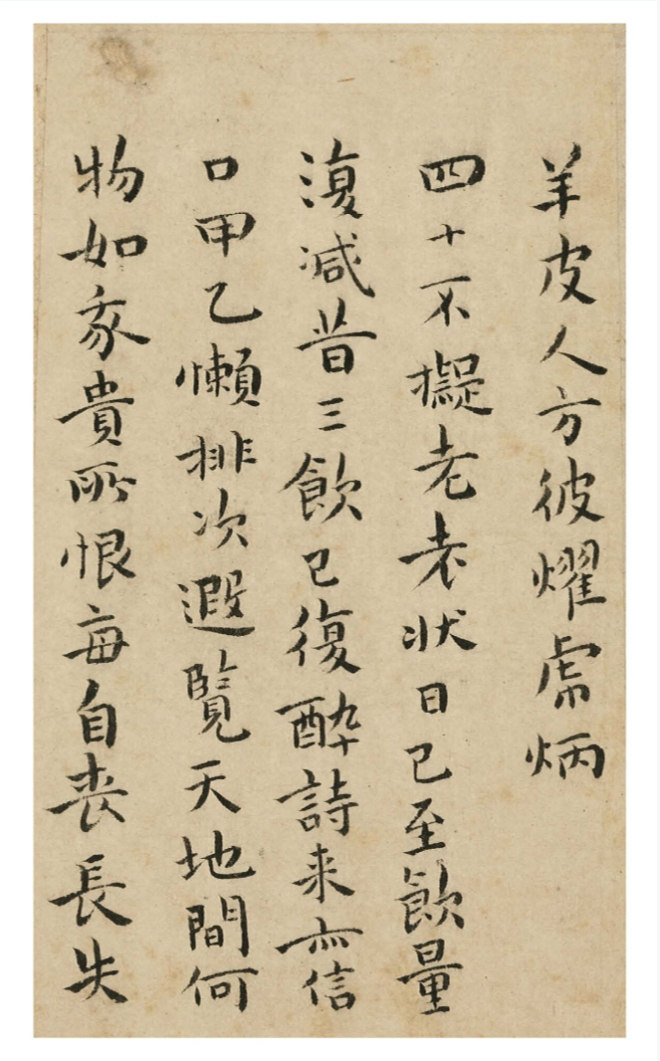 羊皮人方彼燿虎炳
四十不擬老老狀日已至飲量
復減昔三飲已復醉詩来亦信
口甲乙懶排次遐覽天地間何
物如我貴所恨每自喪長失